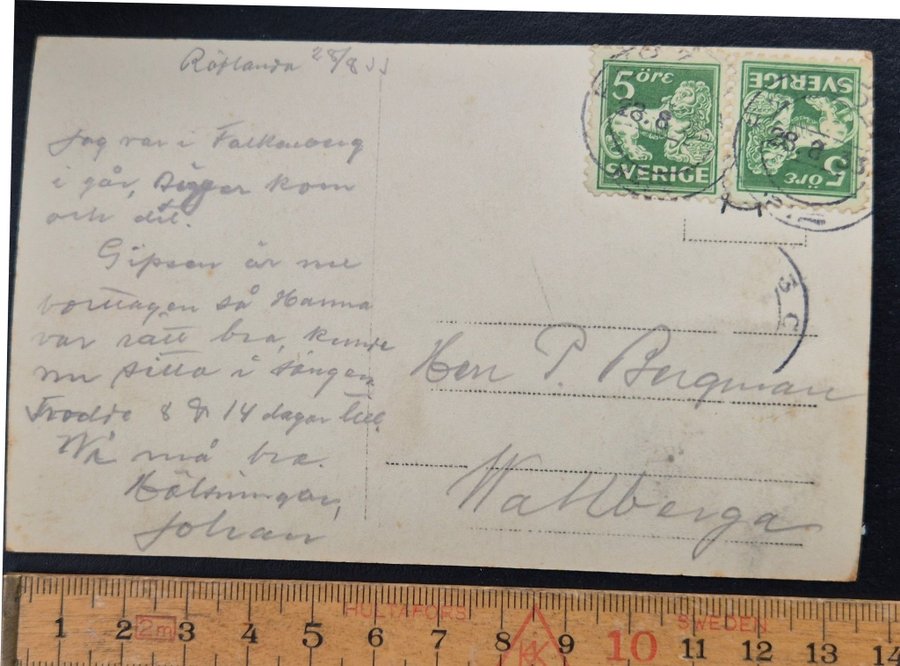 Röflanda 28/8 33
Jag var i Falkenberg
i går, Sigger kom
och dit.
Gipsen är nu
borttagen så Hanna
var rätt bra, kunde
nu sitta i sängen
Trodde 8 á 14 dagar till.
Vi må bra.
Hälsningar,
Johan
5 öre
SVERIGE
28.8
SVERIGE
5 öre
28 8 33
3 C
Herr P. Bergman
Wallberga
HULTAFORS
SWEDEN
2m
1 2 3 4 5 6 7 8 9 10 11 12 13 14